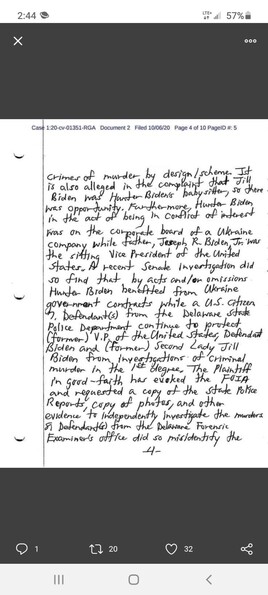 2:44
LTE+
57%
Case 1:20-cv-01351-RGA Document 2 Filed 10/06/20 Page 4 of 10 PageID #: 5
crimes of murder by design/scheme. It
is also alleged in the complaint that Jill
Biden was Hunter Biden's babysitter, so there
was opportunity. Furthermore, Hunter Biden
in the act of being in conflict of interest
was on the corporate board of a Ukraine
company while father, Joseph R. Biden, Jr. was
the sitting Vice President of the United
States. A recent Senate investigation did
so find that by acts and/or omissions
Hunter Biden benefitted from Ukraine
government contracts while a U.S. citizen
7. Defendant(s) from the Delaware State
Police Department continue to protect
(former) V.P. of the United States, Defendant
Biden and (former) Second Lady Jill
Biden from investigations of criminal
murder in the 1st degree. The Plaintiff
in good-faith has evoked the FOIA
and requested a copy of the State Police
Reports, copy of photos, and other
evidence to independently investigate the murders
8) Defendant(s) from the Delaware Forensic
Examiner's office did so misidentify the
-4-
1
20
32